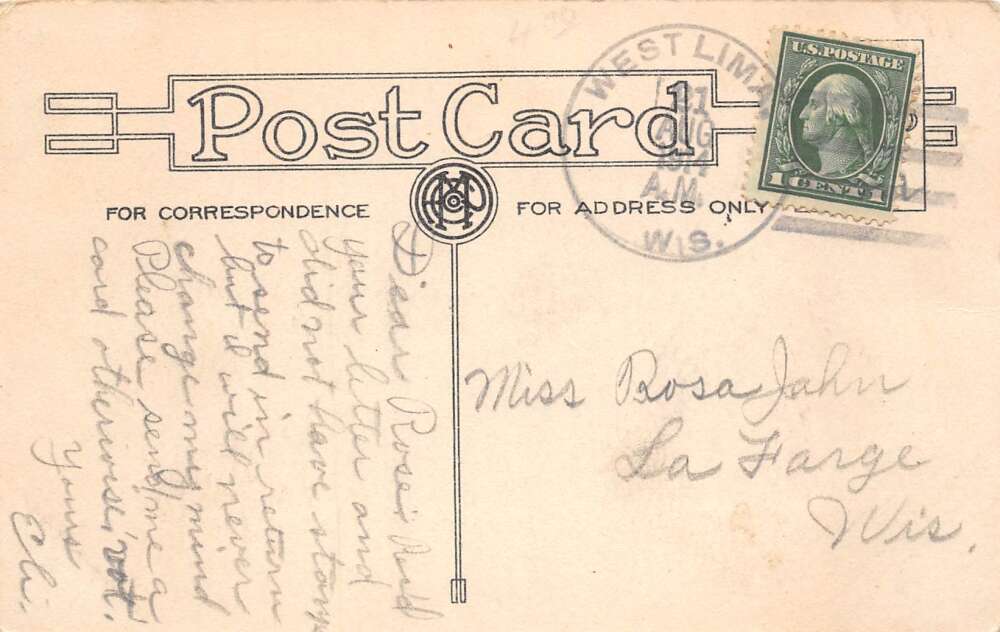 Post Card
FOR CORRESPONDENCE
FOR ADDRESS ONLY
WEST LIMA
21
AUG
1914
A.M.
WIS.
U.S. POSTAGE
1 CENT 1
Dear Rose: Rec'd
your letter and
did not have stamp
to send in return
but I will never
change my mind
Please send me a
card otherwise, not.
Yours
Eli.
Miss Rosa Jahn
La Farge
Wis.